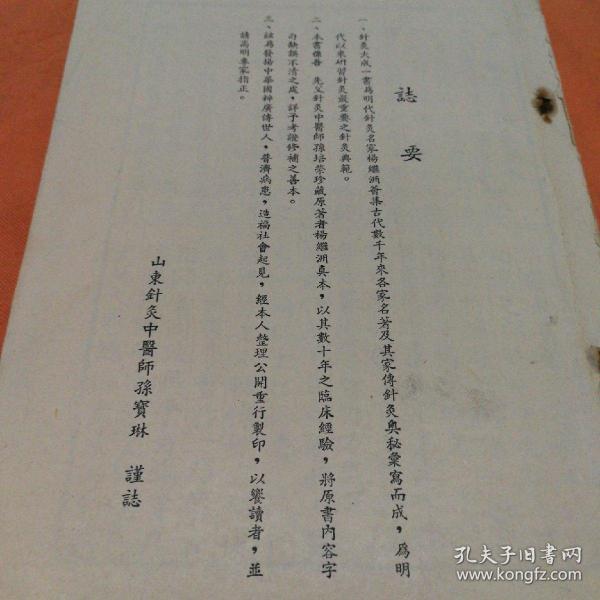 誌要
一、針灸大成一書爲明代針灸名家楊繼洲薈集古代數千年來各家名著及其家傳針灸奧秘彙寫而成，爲明
代以來研習針灸最重要之針灸典範。
二、本書係吾 先父針灸中醫師孫培榮珍藏原著者楊繼洲真本，以其數十年之臨床經驗，將原書內容字
句缺誤不清之處，詳予考證修補之善本。
三、茲爲發揚中華國粹廣傳世人，普濟病患，造福社會起見，經本人整理公開重行製印，以饗讀者，並
請高明專家指正。
山東針灸中醫師孫寶琳 謹誌
孔夫子旧书网
www.kongfz.com